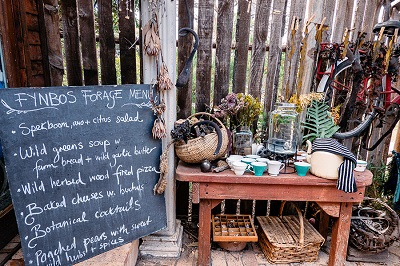 FYNBOS FORAGE MENU
• Spekboom, avo + citrus salad
• Wild greens soup w
farm bread + wild garlic butter
• Wild herbed wood fired pizza
• Baked cheeses w buchus
• Botanical cocktails
• Poached pears with sweet
wild herbs + spices